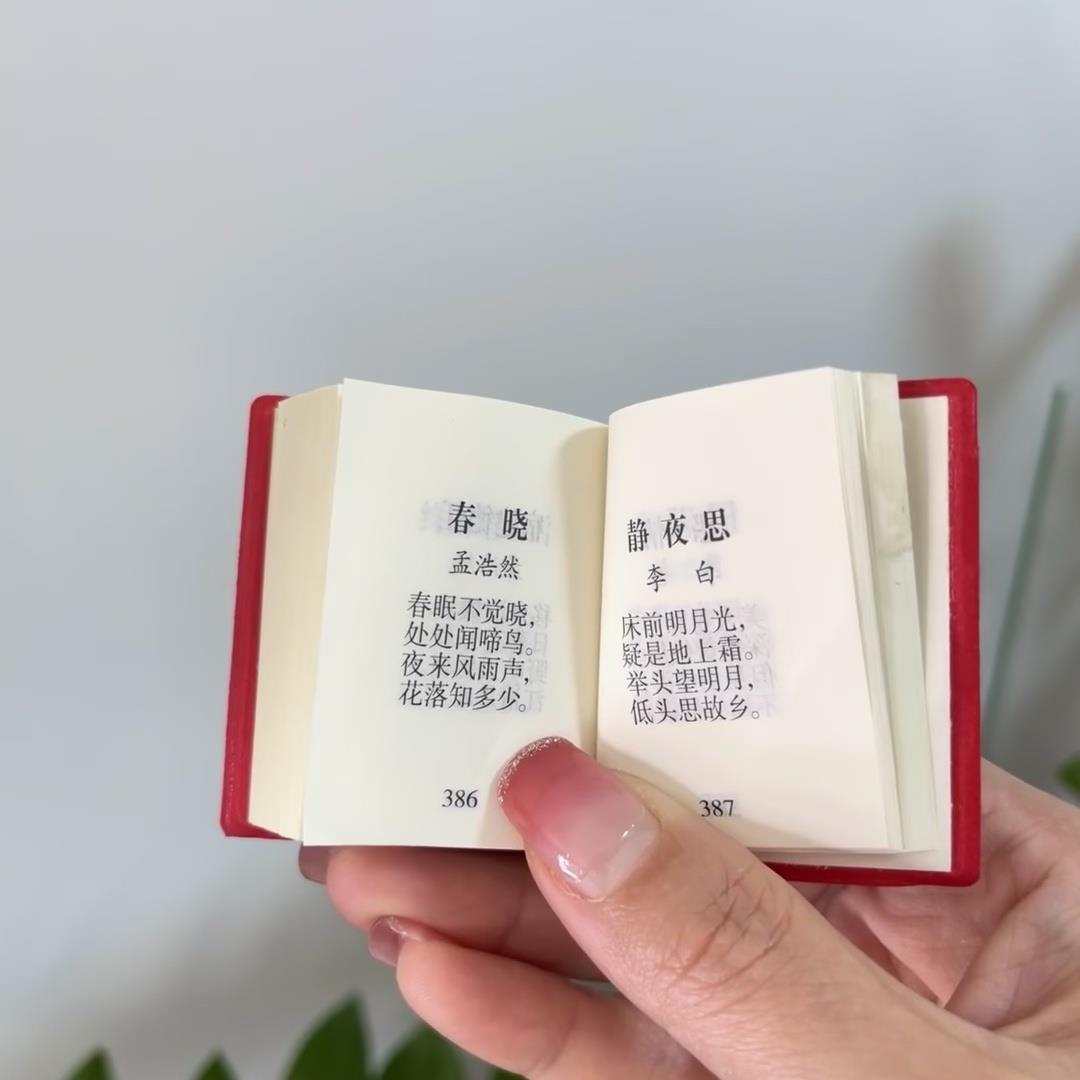 春 晓
孟浩然
春眠不觉晓，
处处闻啼鸟。
夜来风雨声，
花落知多少。
386
静夜思
李 白
床前明月光，
疑是地上霜。
举头望明月，
低头思故乡。
387